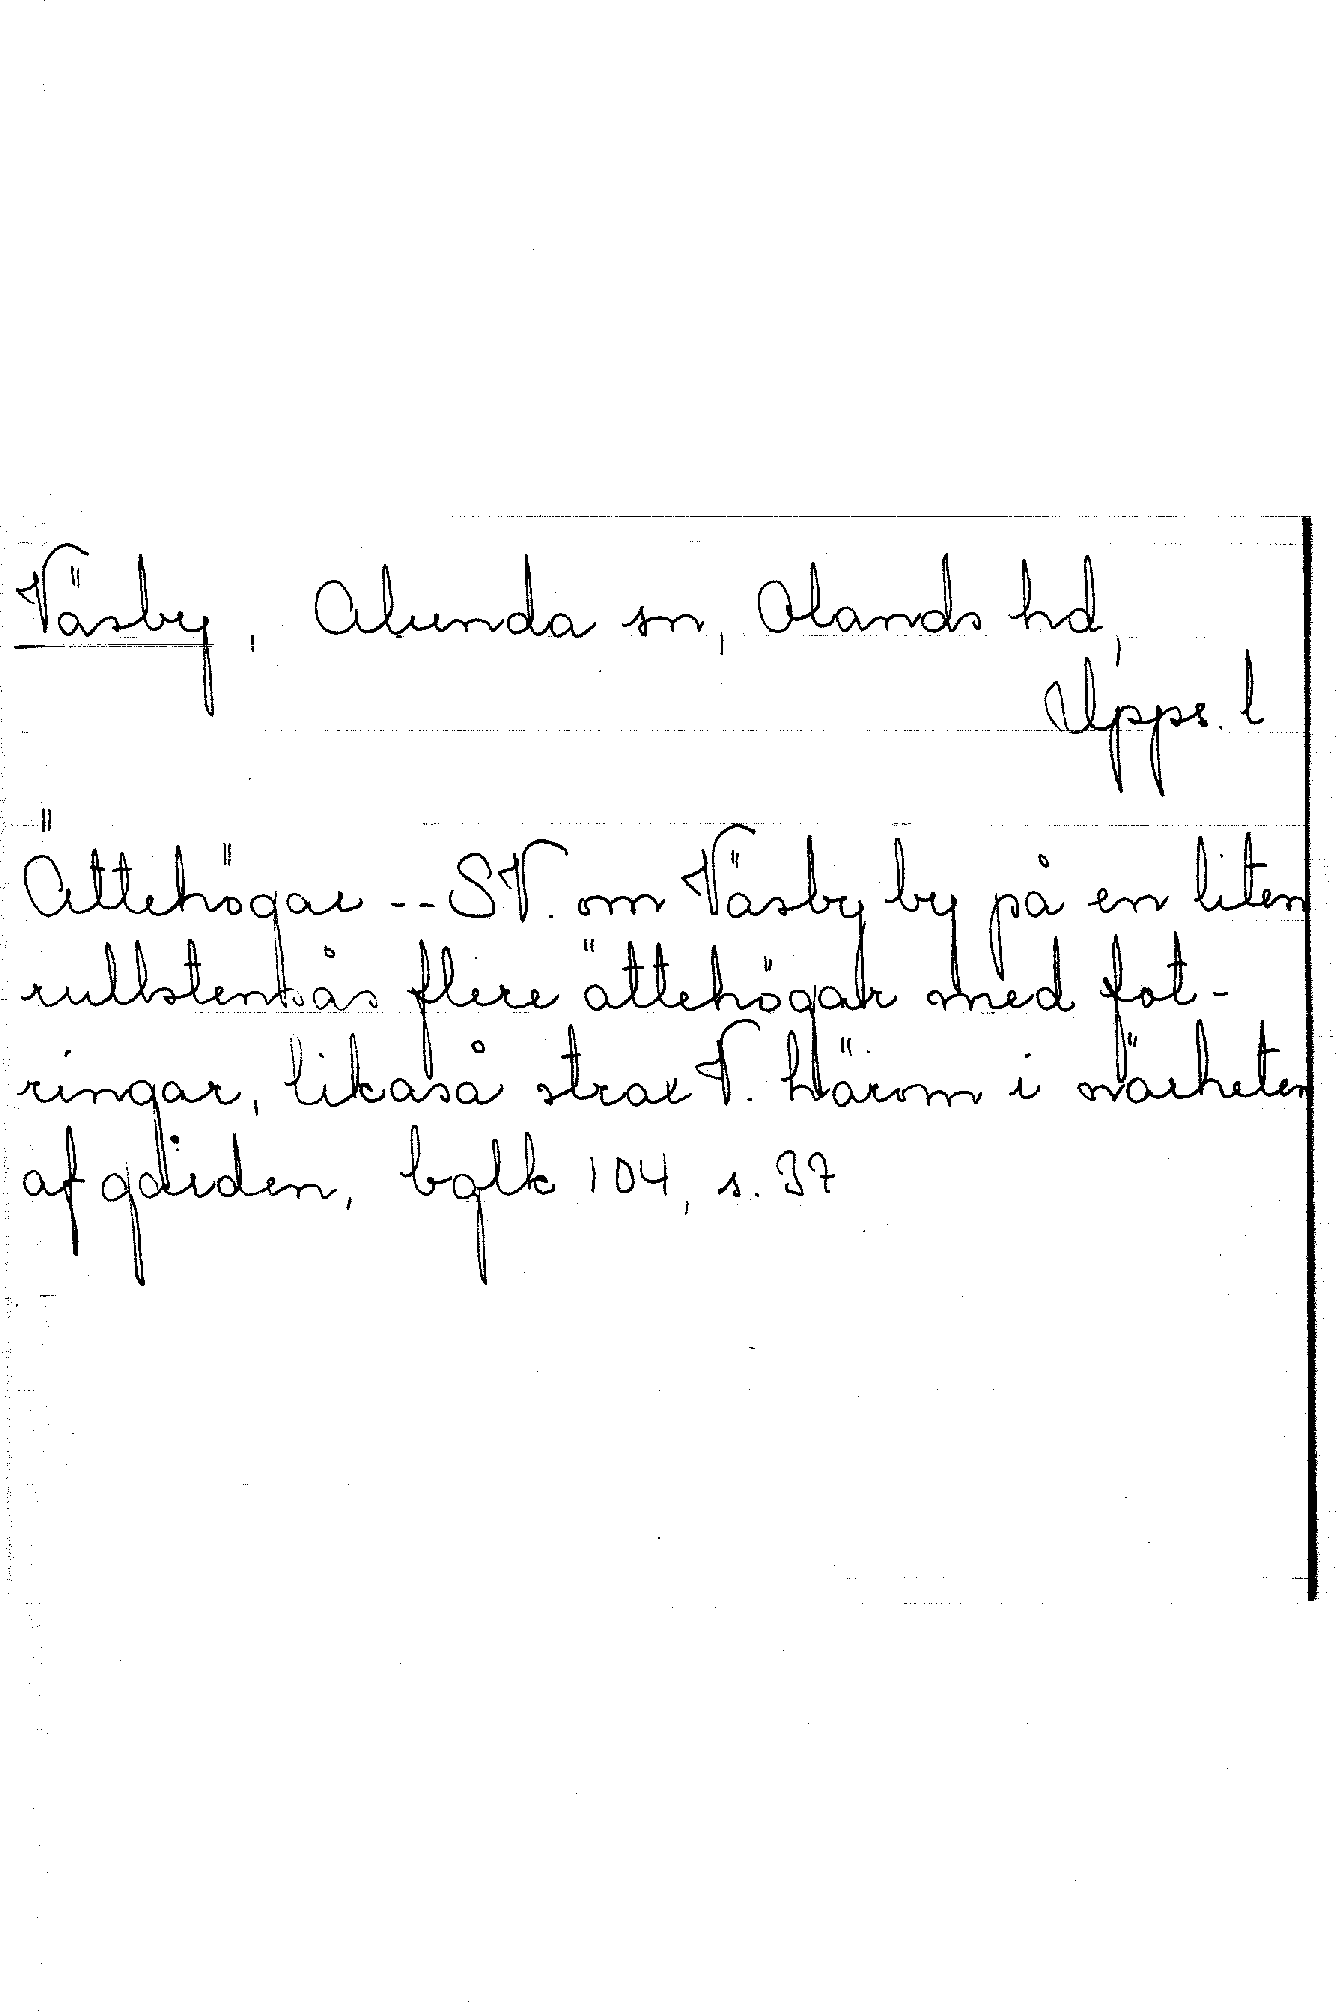 Väsby, Alunda sn, Olands hd,
Upps. l
Ättehögar -- SV. om Väsby by på en liten
rullstensås flere ättehögar med fot-
ringar, likaså strax V. härom i närheten
af gården, bglk 104, s. 37